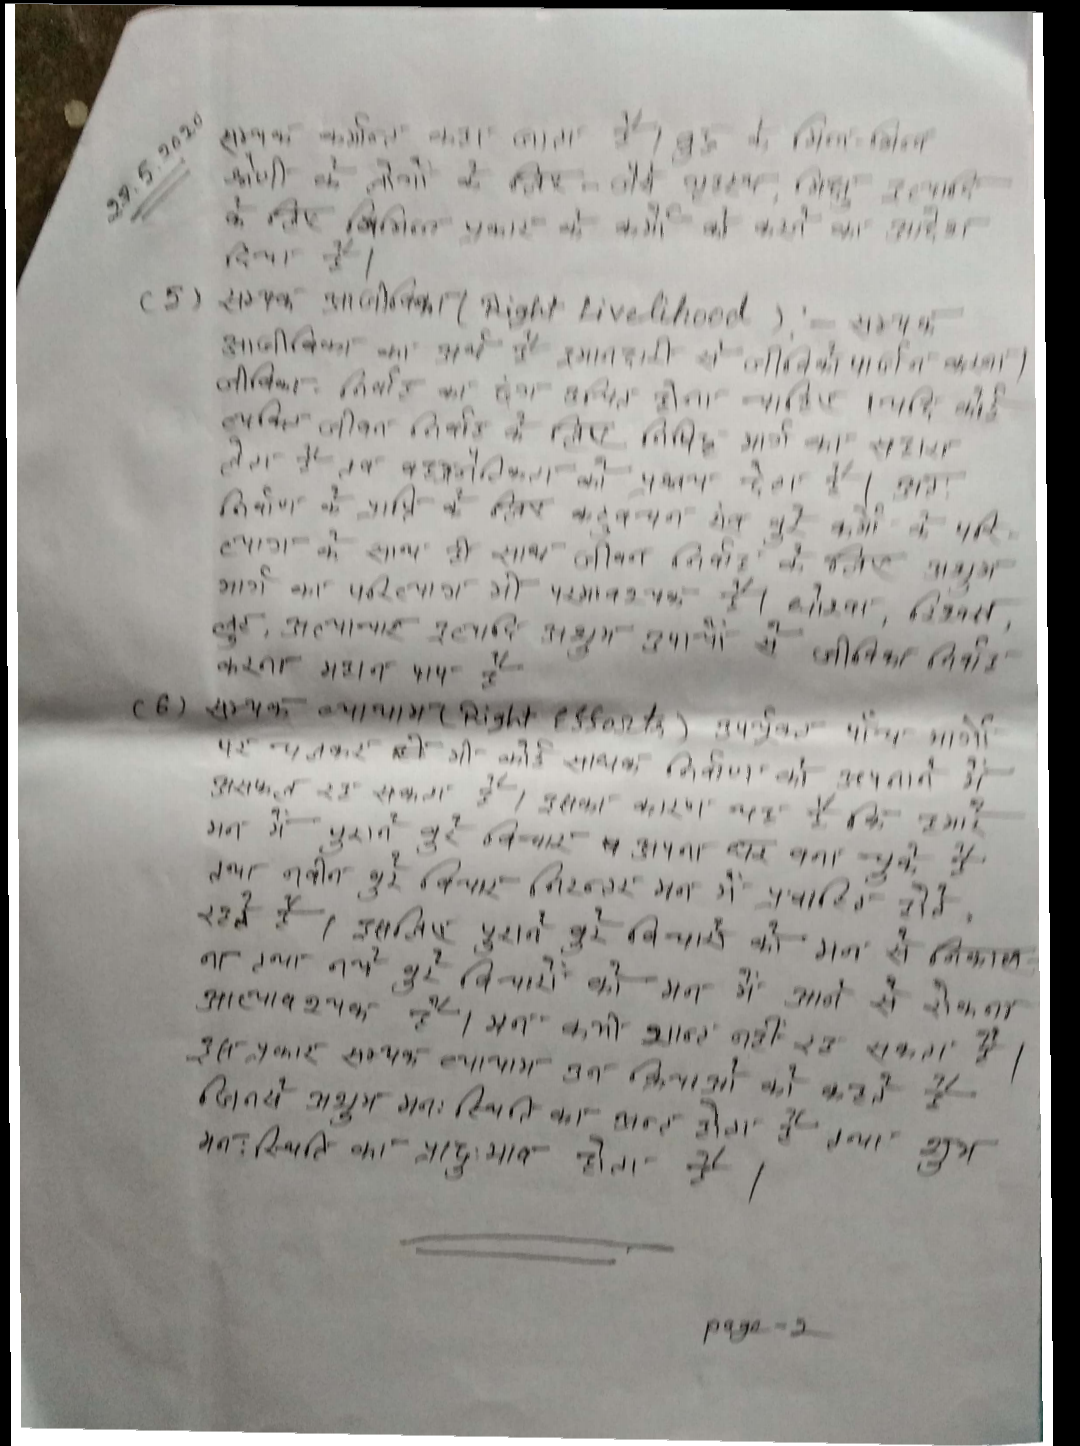 29.5.2020
सम्यक कर्मान्त कहा जाता है। बुद्ध के भिन्न-भिन्न
कोटी के लोगों के लिए - जैसे गृहस्थ, भिक्षु इत्यादि
के लिए विभिन्न प्रकार के कर्मों को करने का आदेश
दिया है।
(5) सम्यक आजीविका (Right Livelihood) :- सम्यक
आजीविका का अर्थ है इमानदारी से जीविकोपार्जन करना।
जीविका-निर्वाह का ढंग उचित होना चाहिए। यदि कोई
व्यक्ति जीवन निर्वाह के लिए निषिद्ध मार्ग का सहारा
लेता है तब वह अनैतिकता को प्रश्रय देता है। अतः
निर्वाण के प्राप्ति के लिए कटुवचन एंव बुरे कर्मों के परि-
त्याग के साथ ही साथ जीवन निर्वाह के लिए अशुभ
मार्ग का परित्याग भी परमावश्यक है। धोखा, रिश्वत,
लुट, अत्याचार इत्यादि अशुभ उपायों से जीविका निर्वाह
करना महान पाप है
(6) सम्यक व्यायाम (Right Efforts) उपर्युक्त पाँच मार्गों
पर चलकर भी कोई साधक निर्वाण को अपनाने में
असफल रह सकता है। इसका कारण यह है कि हमारे
मन में पुराने बुरे विचार अपना घर बना चुके हैं
तथा नवीन बुरे विचार निरन्तर मन में प्रवाहित होते
रहते हैं। इसलिए पुराने बुरे विचारों को मन से निकाल-
ना तथा नये बुरे विचारों को मन में आने से रोकना
अत्यावश्यक है। मन कभी शान्त नहीं रह सकता है।
इस प्रकार सम्यक व्यायाम उन क्रियाओं को कहते हैं
जिनसे अशुभ मनःस्थिति का अन्त होता है तथा शुभ
मनःस्थिति का प्रादुःभाव होता है।
page-2